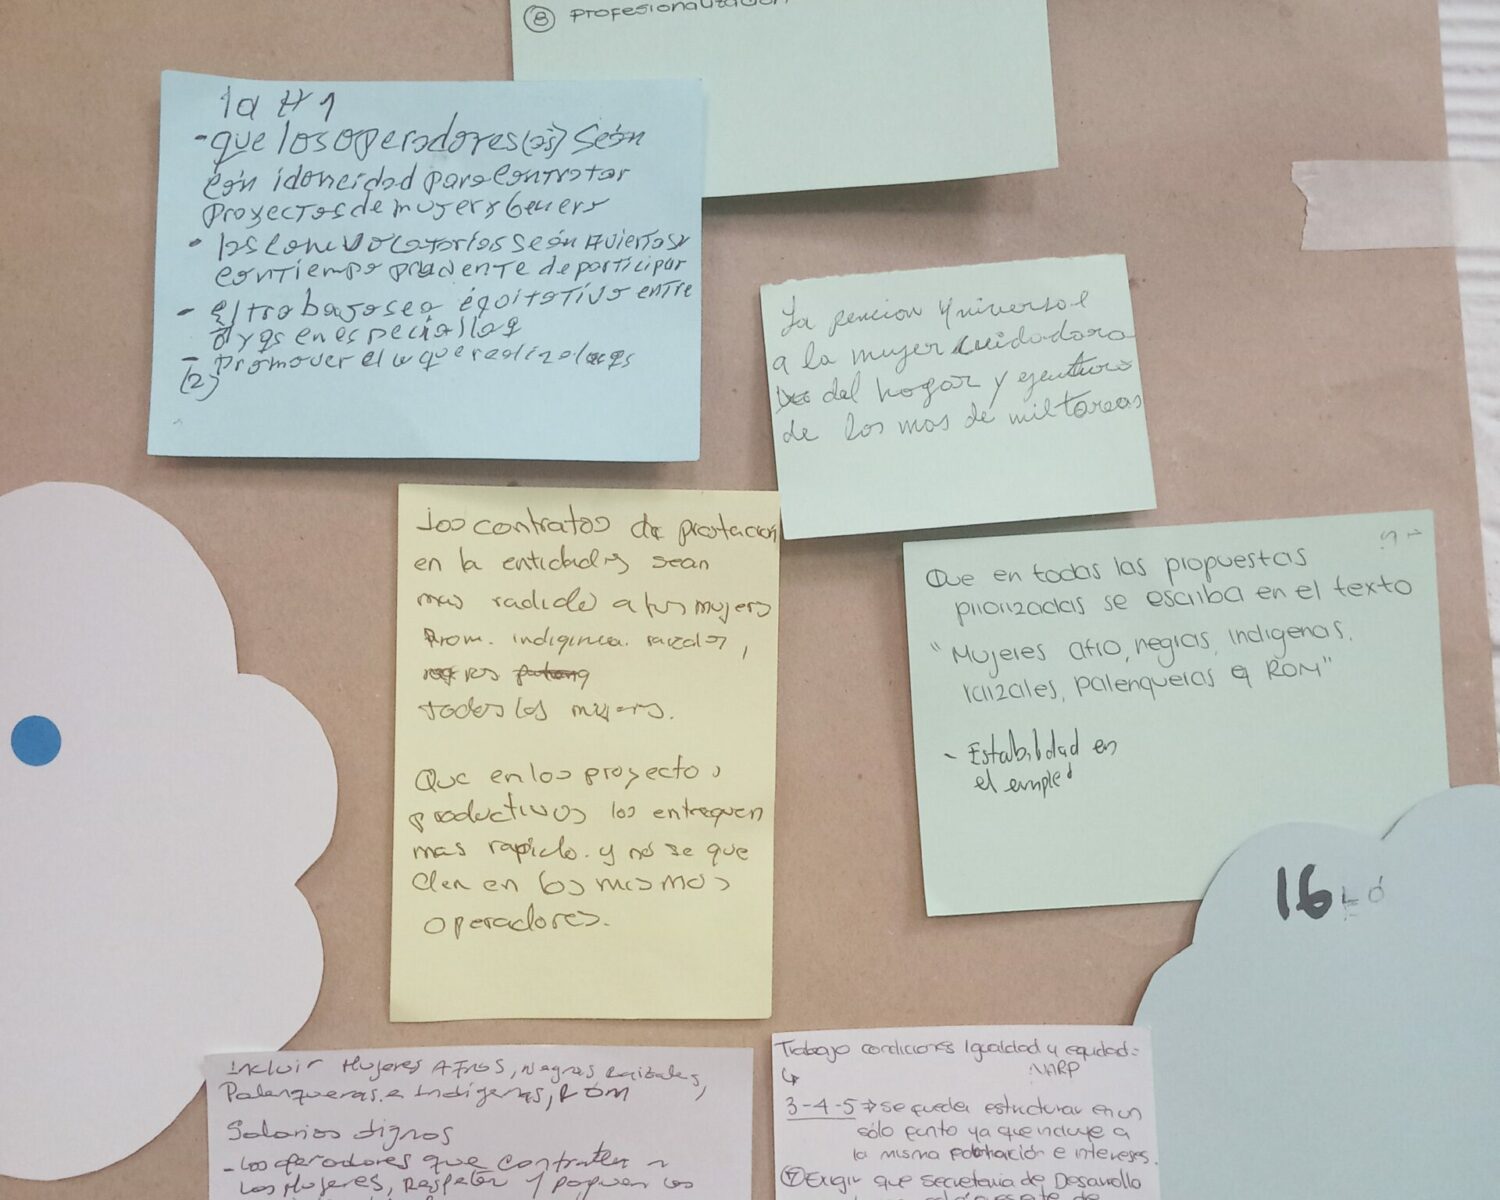 8 profesionalización
1a # 1
- que los operadores(as) Seán
cón idoneidad para contratar
proyectos de mujer y Genero
• las convocatorias seán Aviertas y
con tiempo prudente de participar
- el trabajo sea équitativo entre
en especial los
- Promover el que realizo
(2)
La pencion Universal
a la mujer cuidadora
del hogar y ejecutura
de los mas de mil tareas
Los contratos de prestacion
en la entidades sean
mas a tus mujeres
Rom. indiginea. raizales,
todos las mujeres.
Que en los proyectos
productivos los entreguen
mas rapido. y no se que
den en los mismos
operadores.
Que en todas las propuestas
priorizadas se escriba en el texto
"Mujeres afro, negras, indigenas,
raizales, palenqueras y ROM"
- Estabilidad en
el empleo
16
Incluir Mujeres AFros, Negras Raizales,
Palenqueras e Indígenas, ROM
Salarios dignos
- Los operadores que contraten a
Las Mujeres, Respeten y paguen los
Trabajo condiciones Igualdad y equidad:
NARP
3-4-5 → se pueden estructurar en un
sólo punto ya que incluye a
la misma población e intereses.
Exigir que secretaria de Desarrollo